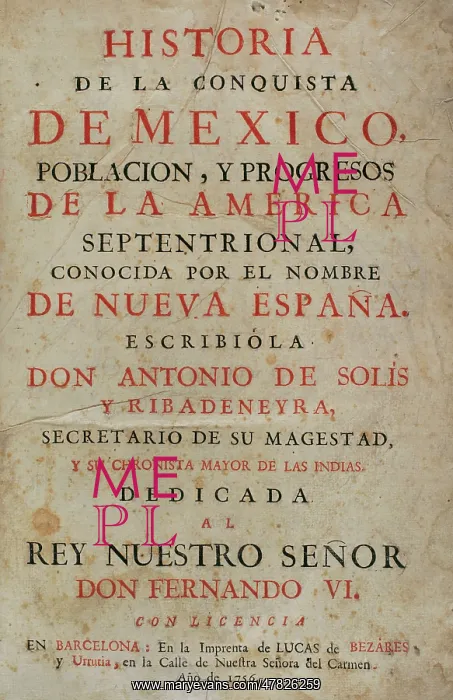 HISTORIA
DE LA CONQUISTA
DE MEXICO,
POBLACION, Y PROGRESOS
DE LA AMERICA
SEPTENTRIONAL,
CONOCIDA POR EL NOMBRE
DE NUEVA ESPAÑA.
ESCRIBIÓLA
DON ANTONIO DE SOLÍS
Y RIBADENEYRA,
SECRETARIO DE SU MAGESTAD,
Y SU CHRONISTA MAYOR DE LAS INDIAS.
DEDICADA
AL
REY NUESTRO SEÑOR
DON FERNANDO VI.
CON LICENCIA
EN BARCELONA: En la Imprenta de LUCAS de BEZÁRES,
y Urrutia, en la Calle de Nueſtra Señora del Carmen.
Año de 1756.
ME
PL
ME
PL
www.maryevans.com/47826259